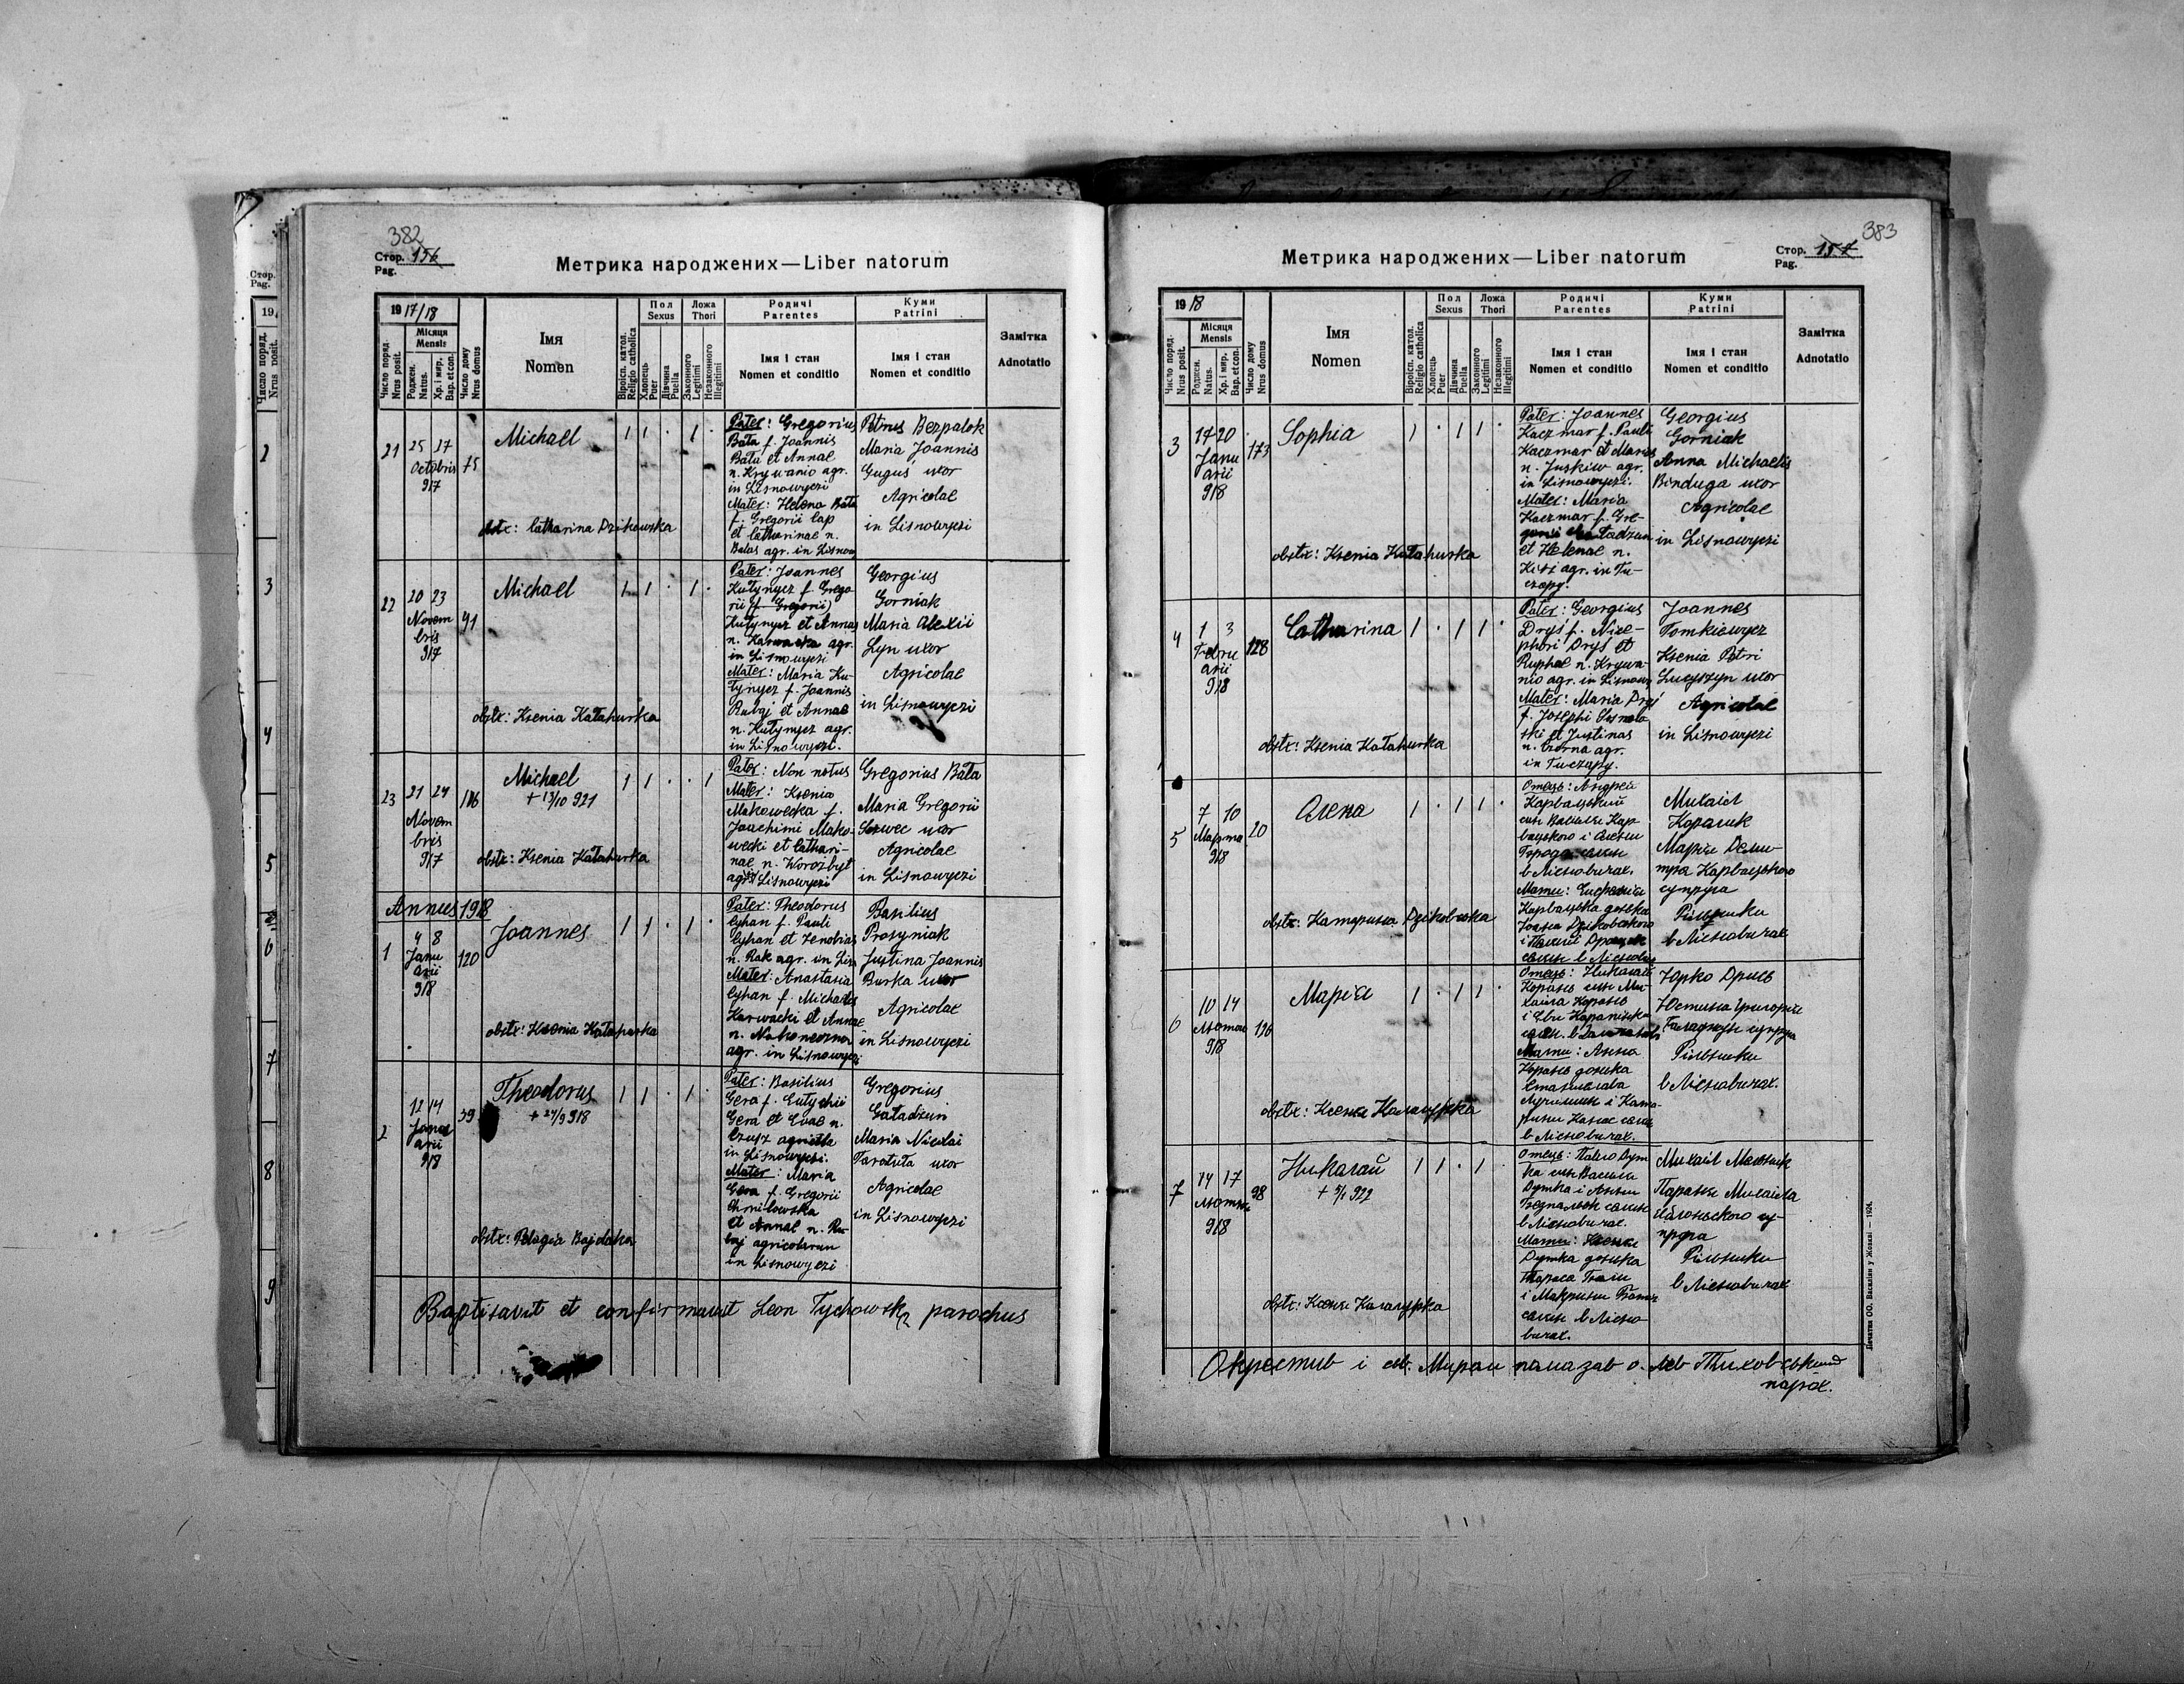 382
Стор. 156
Pag.
Метрика народжених — Liber natorum
1917/18
Число поряд.
Nrus posit.
Місяця
Mensis
Роджен.
Natus.
Хр. і мир.
Bap. et con.
Число дому
Nrus domus
Імя
Nomen
Віроісп. катол.
Religio catholica
Пол
Sexus
Хлопець
Puer
Дівчина
Puella
Ложа
Thori
Законного
Legitimi
Незаконного
Illegitimi
Родичі
Parentes
Імя і стан
Nomen et conditio
Куми
Patrini
Імя і стан
Nomen et conditio
Замітка
Adnotatio
21
25 27
Octobris
917
75
Michael
obstx: Catharina Dzikowska
Pater: Gregorius
Bata f. Joannis
Bata et Annae
n. Krywanio agr.
in Lisnowyczi
Mater: Helena Bata
f. Gregorii Cap
et Catharinae n.
Balas agr. in Lisnow
Petrus Bezpalok
Maria Joannis
Guguś uxor
Agricolae
in Lisnowyczi
22
20 23
Novem
bris
917
41
Michael
obstx: Ksenia Kałahurka
Pater: Joannes
Kutynycz f. Grego
rii (f. Gregorii)
Kutynycz et Annae
n. Karwacka agr.
in Lisnowyczi
Mater: Maria Ku-
tynycz f. Joannis
Rubaj et Annae
n. Kutynycz agr.
in Lisnowyczi.
Georgius
Gorniak
Maria Alexii
Lyn uxor
Agricolae
in Lisnowyczi
23
21 24
Novem
bris
917
116
Michael
+ 13/10 921
obstx: Ksenia Kałahurka
Pater: Non notus
Mater: Ksenia
Makowecka f.
Joachimi Mako-
wecki et Cathari-
nae n. Worożbyt
agr. Lisnowyczi
Gregorius Bata
Maria Gregorii
Szewec uxor
Agricolae
in Lisnowyczi
Annus 1918
1
4 8
Janu
arii
918
120
Joannes
obstx: Ksenia Kałahurka
Pater: Theodorus
Cyhan f. Pauli
Cyhan et Zenobiae
n. Rak agr. in Lisn
Mater: Anastasia
Cyhan f. Michaelis
Karwacki et Annae
n. Nakoneczna
agr. in Lisnowyczi
Basilius
Prosyniak
Justina Joannis
Burka uxor
Agricolae
in Lisnowyczi
2
12 14
Janu
arii
918
39
Theodorus
+ 24/9 918
obstx: Pelagia Bajdaka
Pater: Basilius
Gera f. Eutychii
Gera et Evae n.
in Lisnowyczi.
Mater: Maria
Gera f. Gregorii
Chmilowska
et Annae n. Ru-
baj agricolarum
in Lisnowyczi
Gregorius
Gaładzun
Maria Nicolai
Taratuta uxor
Agricolae
in Lisnowyczi
Baptisavit et confirmavit Leon Tychowski parochus
383
Стор. 157
Pag.
Метрика народжених — Liber natorum
1918
Число поряд.
Nrus posit.
Місяця
Mensis
Роджен.
Natus.
Хр. і мир.
Bap. et con.
Число дому
Nrus domus
Імя
Nomen
Віроісп. катол.
Religio catholica
Пол
Sexus
Хлопець
Puer
Дівчина
Puella
Ложа
Thori
Законного
Legitimi
Незаконного
Illegitimi
Родичі
Parentes
Імя і стан
Nomen et conditio
Куми
Patrini
Імя і стан
Nomen et conditio
Замітка
Adnotatio
3
17 20
Janu
arii
918
173
Sophia
obstx: Ksenia Kałahurka
Pater: Joannes
Kaczmar f. Pauli
Kaczmar et Mariae
n. Juskiw agr.
in Lisnowyczi.
Mater: Maria
Kaczmar f. Gre-
gorii Gaładzun
et Helenae n.
agr. in Tu-
czapy.
Georgius
Gorniak
Anna Michaelis
Binduga uxor
Agricolae
in Lisnowyczi
4
1 3
Febru
arii
918
128
Catharina
obstx: Ksenia Kałahurka
Pater: Georgius
Dryś f. Nice-
phori Dryś et
n. Krywa-
nio agr. in Lisnow
Mater: Maria Dryś
f. Josephi
ski et Justinae
n. Czorna agr.
in Tuczapy.
Joannes
Tomkiewycz
Ksenia Petri
Łucyszyn uxor
Agricolae
in Lisnowyczi
5
7 10
Марта
918
20
Олена
obstx: Катерина Дзіковска
Отець: Андрей
Карвацький
син Василя Кар
вацького і Анни
в Лісновичах.
Мати: Евфемія
Карвацька донька
Іоана Дзіковского
Михаіл
Коралик
Марія Дими-
тра Карвацького
супруга
Рільники
в Лісновичах
6
10 14
Лютого
918
126
Марія
obstx: Ксеня Калагурка
Отець: Николай
Корань син Ми-
хаіла Корань
Мати: Анна
Корань донька
Станислава
і Кате-
рини
в Лісновичах.
Юрко Дрись
Юстина Григорія
Галаджун супруга
Рільники
в Лісновичах.
7
14 17
Лютого
918
98
Николай
+ 5/1 922
obstx: Ксеня Калагурка
Отець: Павло Дут
ка син Василя
Дутка і Анни
Безпальок селян
в Лісновичах.
Мати: Ксеня
Дутка донька
Тараса
і Макрини
селян в Лісно-
вичах.
Михаіл Мельник
Параня Михаіла
Яблонського су-
пруга
Рільники
в Лісновичах
Окрестив і св. Миром помазав о. Лев Тиховський
парох.
Печатня ОО. Василіян у Жовкві — 1924.